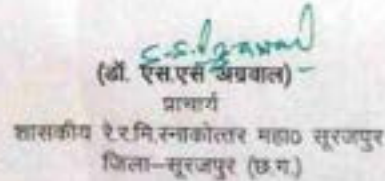 (डॉ. एस.एस अग्रवाल)
प्राचार्य
शासकीय रे.र.मि.स्नाकोत्तर महा० सूरजपुर
जिला–सूरजपुर (छ.ग.)